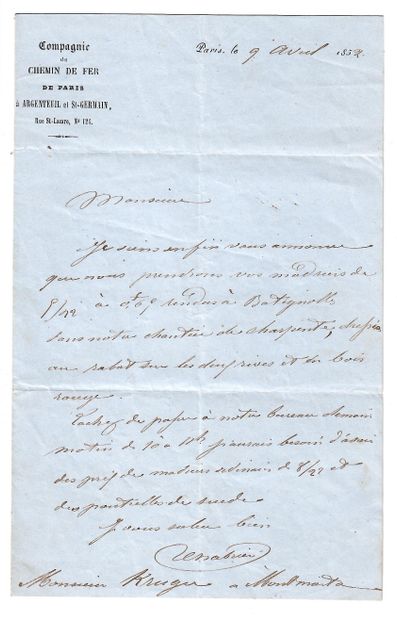 Compagnie
du
CHEMIN DE FER
DE PARIS
à ARGENTEUIL et St-GERMAIN,
Rue St-Lazare, No 124.
Paris, le 9 avril 1852
Monsieur
Je viens enfin vous annoncer
que nous prendrons vos madriers de
8/22 à rendus à Batignolles
dans notre chantier de charpente, dressés
au rabot sur les deux rives et en bois
rouge.
Tachez de passer à notre bureau demain
matin de 10 à 11h j'aurais besoin d'avoir
des prix de madriers ordinaires de 8/22 et
des de suede
Je vous salue bien
Monsieur Kruger à Montmartre